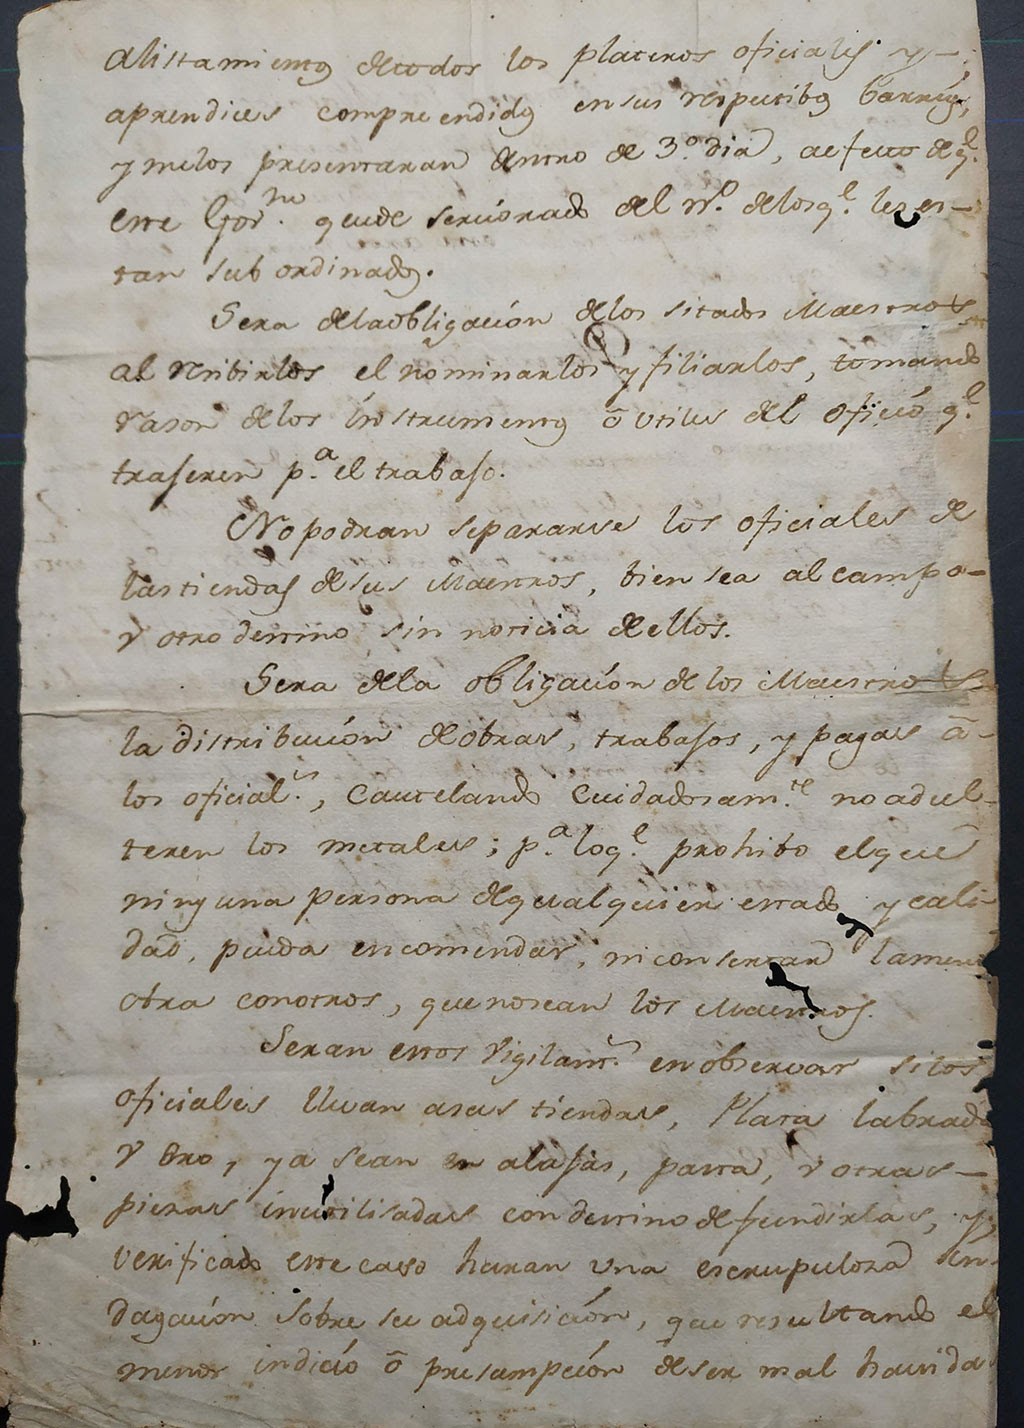 alistamientos de todos los plateros oficiales y-
aprendices comprendidos en sus respectibos barrios,
y melos presentaran dentro de 3.º dia, aefecto de q.e
este Gov.no quede serciorado del N.º delosq.e les es-
tan sub ordinados.
Sera dela obligacion delos sitados Maestros
al resibirlos el nominarlos y filiarlos, tomando
rason delos instrumentos õ utiles del oficio q.e
trageren p.a el trabajo.
No podran separarse los oficiales de
las tiendas de sus Maestros, bien sea al campo-
v otro destino sin noticia de ellos.
Sera dela obligacion de los Maestros
la distribucion deobras, trabajos, y pagas ã-
los oficial.s, Cautelando Cuidadosam.te no adul-
teren los metales; p.a loq.e prohibo elque
ninguna persona dequalquier estado y cali-
dad, pueda encomendar, ni consertar la menor
obra conotros, que nosean los Maestros.
Seran estos Vigilant.s en observar silos
oficiales llevan asus tiendas, Plata labrada
v oro, ya sean en alajas, pasta, v otras-
piesas inutilisadas con destino defundirlas, y,
verificado este caso haran una escrupulosa in-
dagacion sobre su adquisicion, que resultando el
menor indicio õ presumpcion deser mal havida